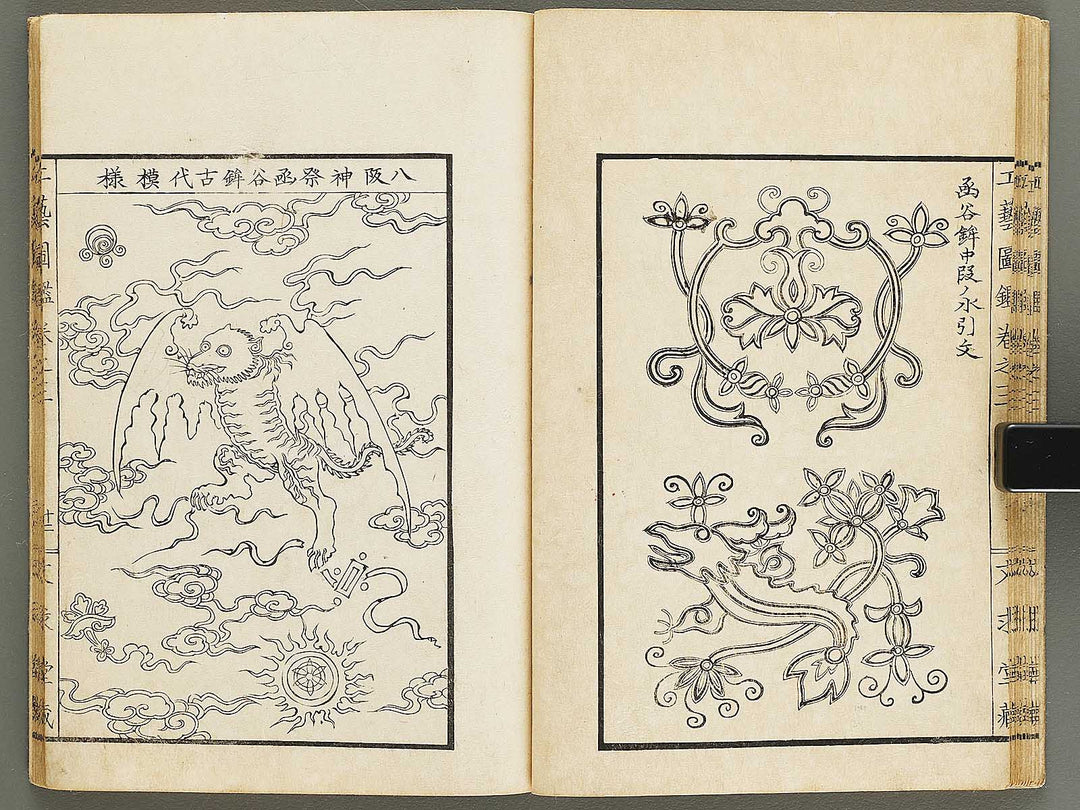 工藝圖鑑卷之三
函谷鉾中段ノ水引文
八阪神祭函谷鉾古代模様
工藝圖鑑卷之三